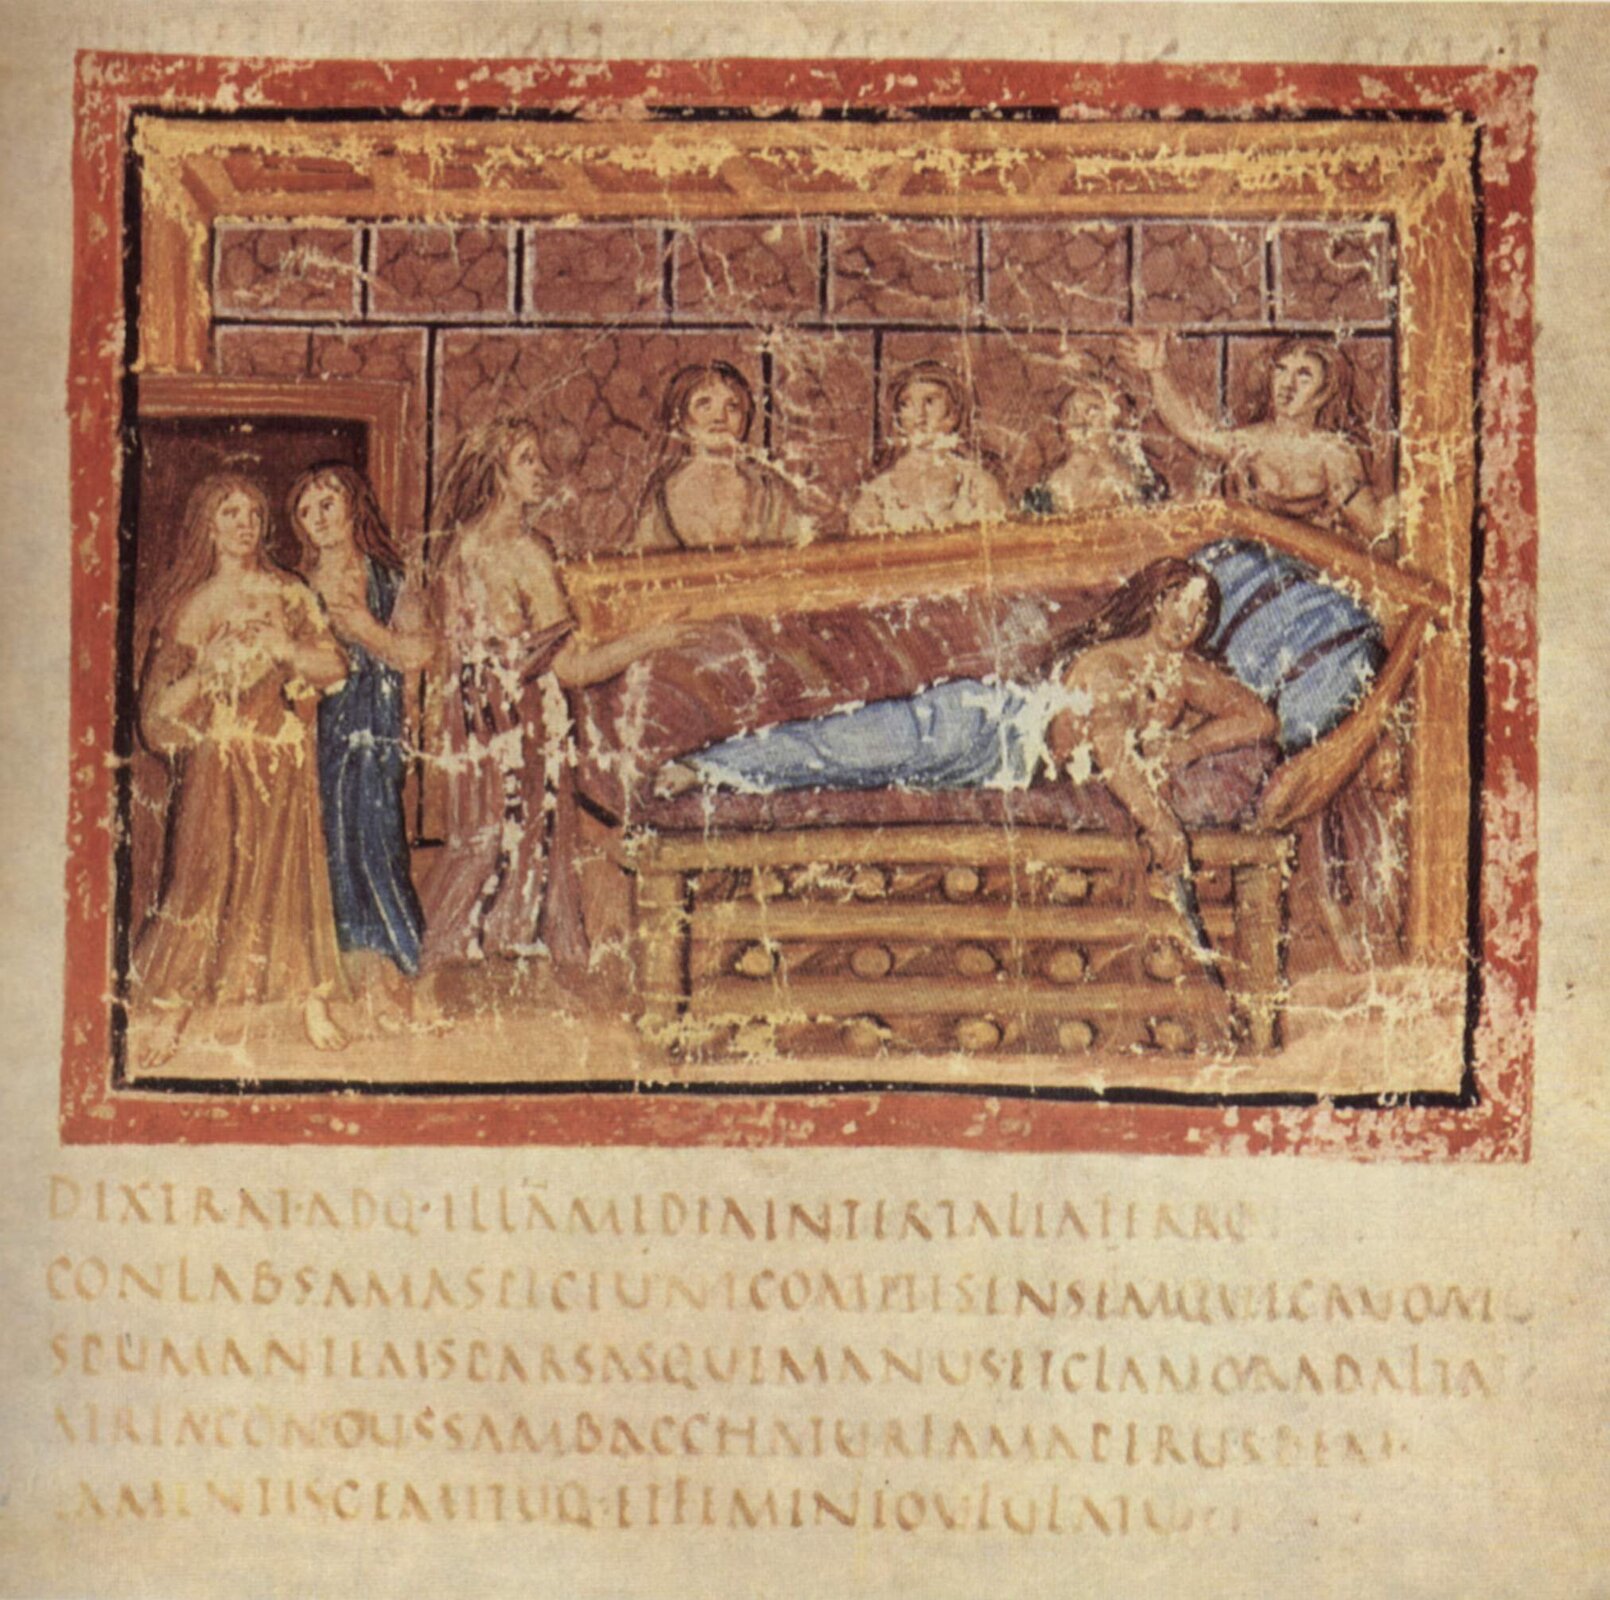 DIXERAT·ADQ·ILLĀMEDIAINTERTALIAFERRO
CONLABSAMASPICIUNTCOMITESENSEMQUECRUORE
SPUMANTEMSPARSASQUEMANUSETCLAMORADALTA
ATRIACONCUSSAMBACCHATURFAMAPERURBEM
LAMENTISGEMITUQ·ETFEMINEOULULATU